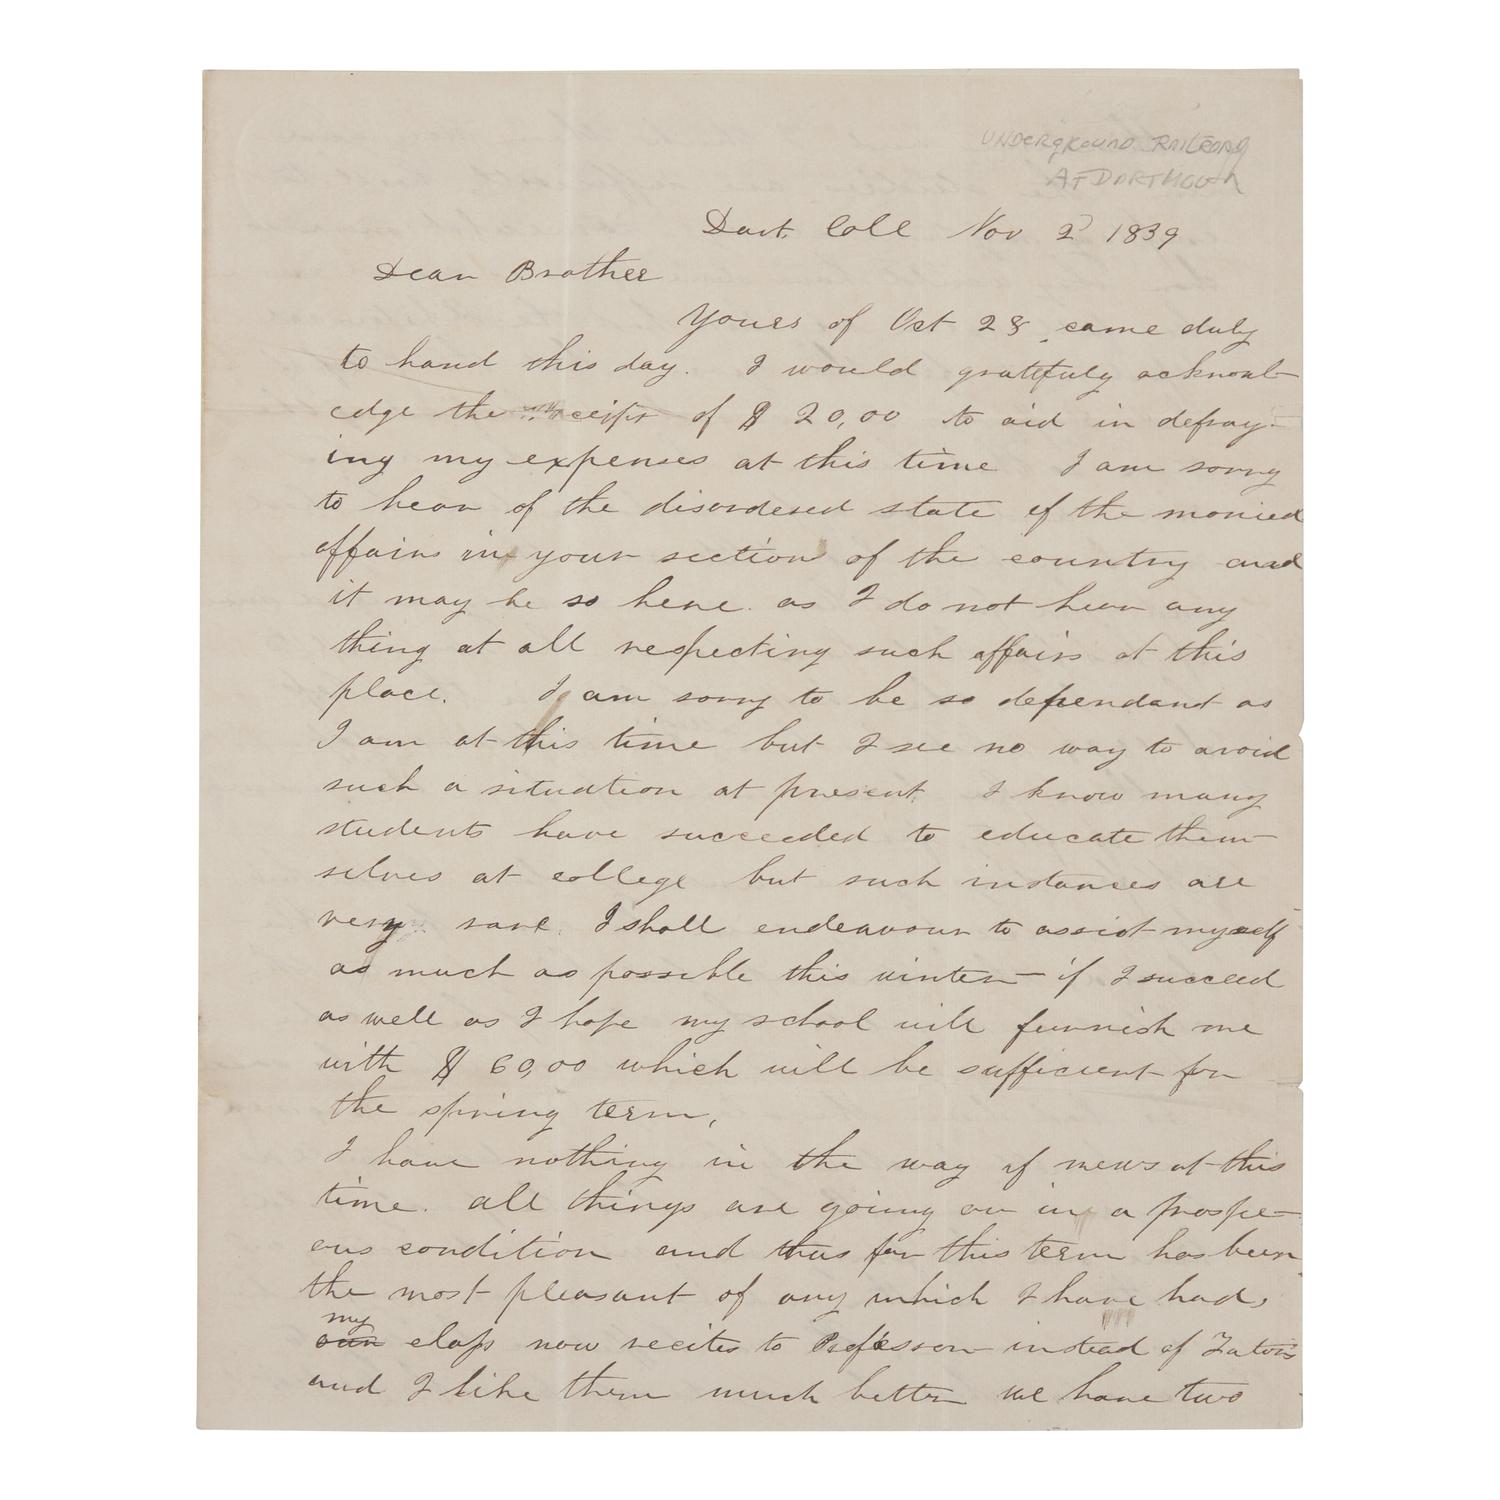 UNDERGROUND RAILROAD
AT DARTMOUTH
Dart. Coll Nov 2 1839
Dear Brother
Yours of Oct 28 came duly
to hand this day. I would gratfuly acknowl-
edge the receipt of $ 20,00 to aid in defray-
ing my expenses at this time I am sorry
to hear of the disordered state of the monied
affairs in your section of the country and
it may be so here. as I do not hear any
thing at all respecting such affairs at this
place. I am sorry to be so dependant as
I am at this time but I see no way to avoid
such a situation at present. I know many
students have succeeded to educate them-
selves at college but such instances are
very rare. I shall endeavour to assist myself
as much as possible this winter - if I succeed
as well as I hope my school will furnish me
with $ 60,00 which will be sufficient for
the spring term,
I have nothing in the way of news at this
time. all things are going on in a prospe-
ous condition and thus far this term has been
the most pleasant of any which I have had,
my
our class now recites to Professors instead of Tutors
and I like them much better we have two